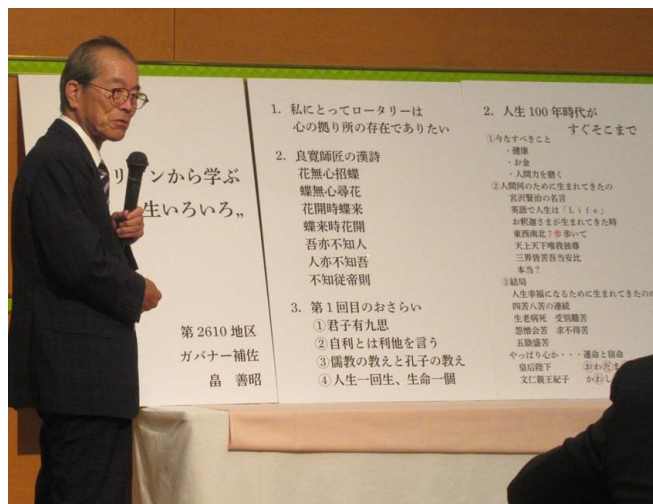 リーンから学ぶ
生いろいろ„
第2610地区
ガバナー補佐
畠 善昭
1. 私にとってロータリーは
心の拠り所の存在でありたい
2. 良寛師匠の漢詩
花無心招蝶
蝶無心尋花
花開時蝶来
蝶来時花開
吾亦不知人
人亦不知吾
不知従帝則
3. 第1回目のおさらい
①君子有九思
②自利とは利他を言う
③儒教の教えと孔子の教え
④人生一回生、生命一個
2. 人生100年時代が
すぐそこまで
①今なすべきこと
・健康
・お金
・人間力を磨く
②人間何のために生まれてきたの
宮沢賢治の名言
英語で人生は「Life」
お釈迦さまが生まれてきた時
東西南北7歩歩いて
天上天下唯我独尊
三界皆苦吾当安比
本当?
③結局
人生幸福になるために生まれてきたの
四苦八苦の連続
生老病死 愛別離苦
怨憎会苦 求不得苦
五陰盛苦
やっぱり心か・・・運命と宿命
皇后陛下 おわだま
文仁親王紀子 かわし